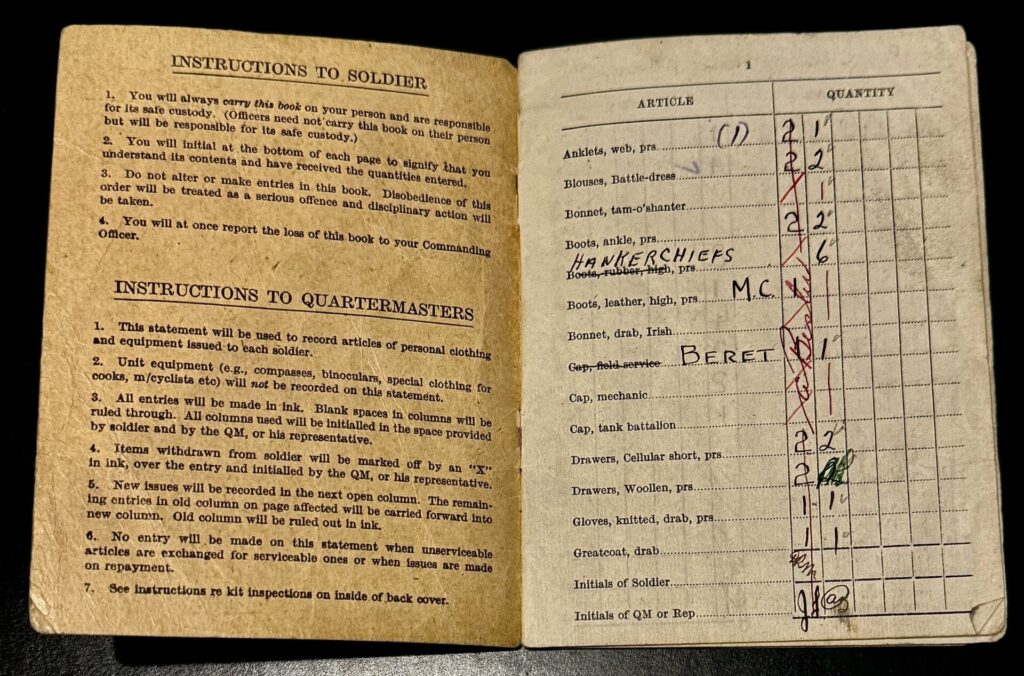 INSTRUCTIONS TO SOLDIER
1. You will always carry this book on your person and are responsible
for its safe custody. (Officers need not carry this book on their person
but will be responsible for its safe custody.)
2. You will initial at the bottom of each page to signify that you
understand its contents and have received the quantities entered.
3. Do not alter or make entries in this book. Disobedience of this
order will be treated as a serious offence and disciplinary action will
be taken.
4. You will at once report the loss of this book to your Commanding
Officer.
INSTRUCTIONS TO QUARTERMASTERS
1. This statement will be used to record articles of personal clothing
and equipment issued to each soldier.
2. Unit equipment (e.g., compasses, binoculars, special clothing for
cooks, m/cyclists etc) will not be recorded on this statement.
3. All entries will be made in ink. Blank spaces in columns will be
ruled through. All columns used will be initialled in the space provided
by soldier and by the QM, or his representative.
4. Items withdrawn from soldier will be marked off by an "X"
in ink, over the entry and initialled by the QM, or his representative.
5. New issues will be recorded in the next open column. The remain-
ing entries in old column on page affected will be carried forward into
new column. Old column will be ruled out in ink.
6. No entry will be made on this statement when unserviceable
articles are exchanged for serviceable ones or when issues are made
on repayment.
7. See instructions re kit inspections on inside of back cover.
1
ARTICLE QUANTITY
Anklets, web, prs. (1) 2 1
Blouses, Battle-dress 2 2
Bonnet, tam-o'shanter 1
Boots, ankle, prs. 2 2
HANKERCHIEFS 6
Boots, rubber, high, prs.
Boots, leather, high, prs. M.C.
Bonnet, drab, Irish
Cap, field service BERET 1
Cap, mechanic
Cap, tank battalion
Drawers, Cellular short, prs. 2 2
Drawers, Woollen, prs. 2
Gloves, knitted, drab, prs. 1 1
Greatcoat, drab 1 1
Initials of Soldier
Initials of QM or Rep